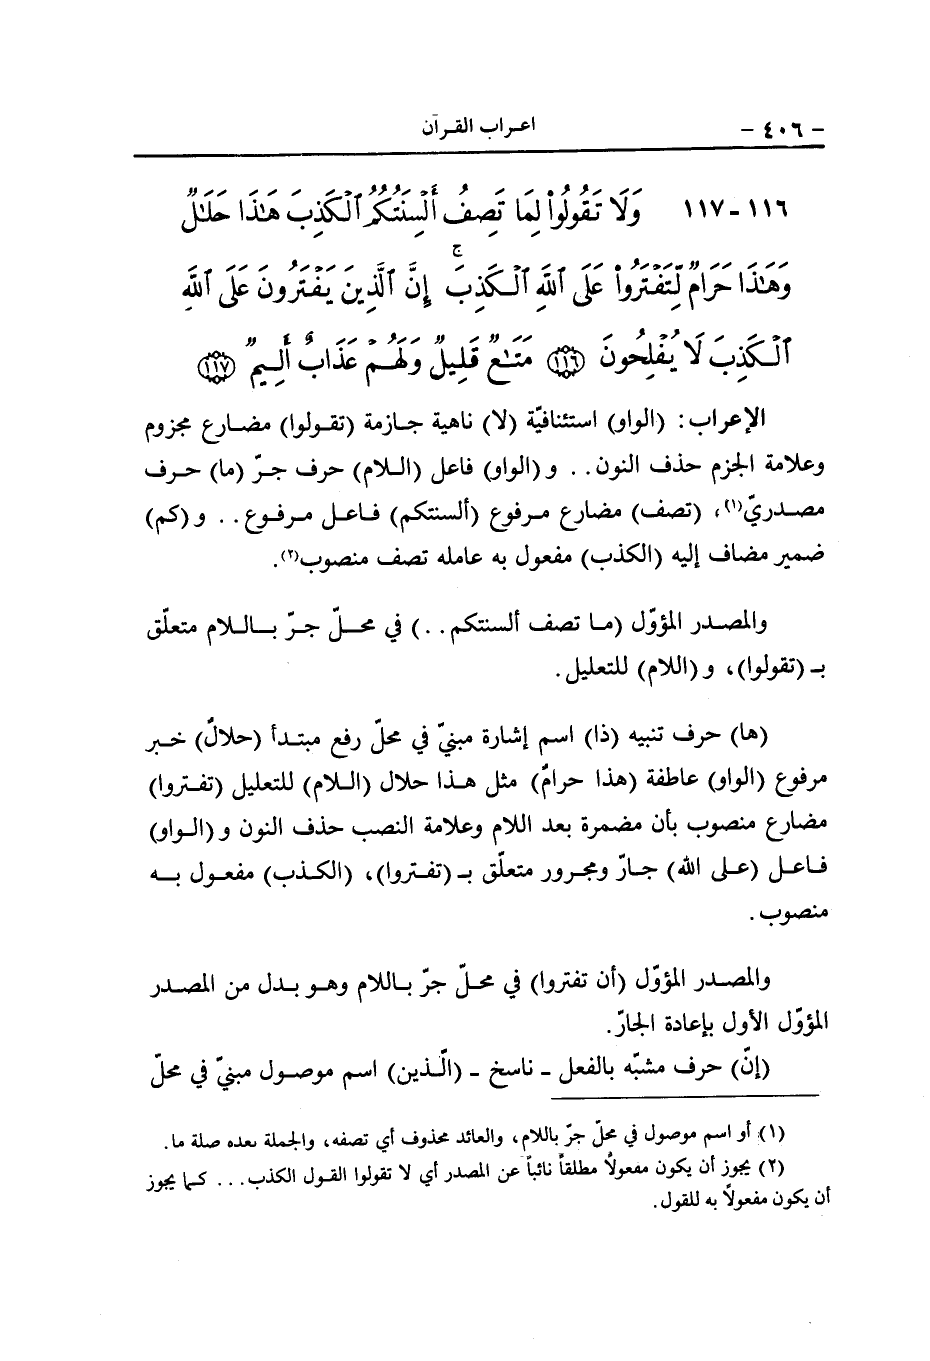 - ٤٠٦ - اعراب القرآن
١١٦ - ١١٧ وَلَا تَقُولُواْ لِمَا تَصِفُ أَلْسِنَتُكُمُ ٱلْكَذِبَ هَٰذَا حَلَٰلٌ
وَهَٰذَا حَرَامٌ لِّتَفْتَرُواْ عَلَى ٱللَّهِ ٱلْكَذِبَ ۚ إِنَّ ٱلَّذِينَ يَفْتَرُونَ عَلَى ٱللَّهِ
ٱلْكَذِبَ لَا يُفْلِحُونَ ﴿١١٦﴾ مَتَٰعٌ قَلِيلٌ وَلَهُمْ عَذَابٌ أَلِيمٌ ﴿١١٧﴾
الإعراب: (الواو) استئنافيّة (لا) ناهية جازمة (تقولوا) مضارع مجزوم
وعلامة الجزم حذف النون.. و(الواو) فاعل (اللام) حرف جرّ (ما) حرف
مصدريّ(١)، (تصف) مضارع مرفوع (ألسنتكم) فاعل مرفوع.. و(كم)
ضمير مضاف إليه (الكذب) مفعول به عامله تصف منصوب(٢).
والمصدر المؤوّل (ما تصف ألسنتكم..) في محلّ جرّ باللام متعلّق
بـ (تقولوا)، و(اللام) للتعليل.
(ها) حرف تنبيه (ذا) اسم إشارة مبنيّ في محلّ رفع مبتدأ (حلالٌ) خبر
مرفوع (الواو) عاطفة (هذا حرامٌ) مثل هذا حلال (اللام) للتعليل (تفتروا)
مضارع منصوب بأن مضمرة بعد اللام وعلامة النصب حذف النون و(الواو)
فاعل (على الله) جارّ ومجرور متعلّق بـ (تفتروا)، (الكذب) مفعول به
منصوب.
والمصدر المؤوّل (أن تفتروا) في محلّ جرّ باللام وهو بدل من المصدر
المؤوّل الأول بإعادة الجارّ.
(إنّ) حرف مشبّه بالفعل - ناسخ - (الّذين) اسم موصول مبنيّ في محلّ
(١) أو اسم موصول في محلّ جرّ باللام، والعائد محذوف أي تصفه، والجملة بعده صلة ما.
(٢) يجوز أن يكون مفعولاً مطلقاً نائباً عن المصدر أي لا تقولوا القول الكذب... كما يجوز
أن يكون مفعولاً به للقول.